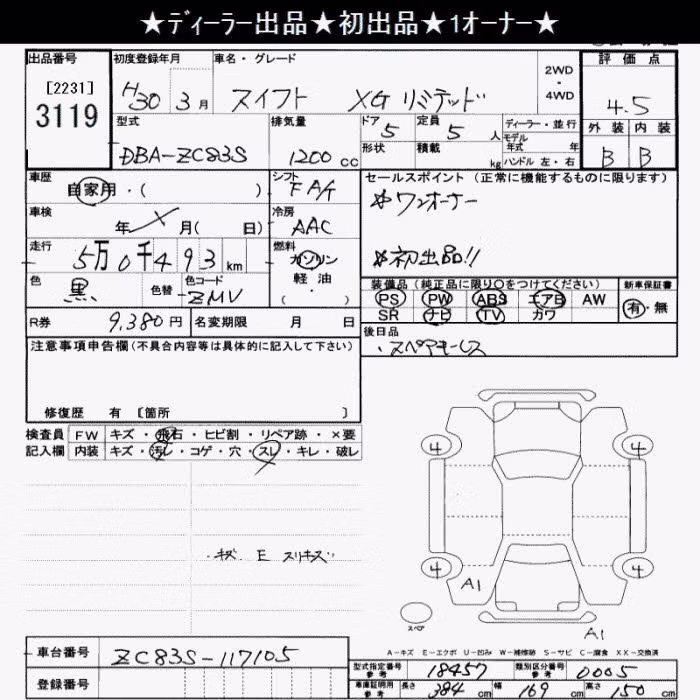 ★ディーラー出品★初出品★1オーナー★
出品番号 初度登録年月 車名・グレード 2WD・4WD 評価点
[2231]
3119 H30 3月 スイフト XGリミテッド 4.5
型式 排気量 ドア 定員 ディーラー・並行 外装 内装
DBA-ZC83S 1200cc 5 5人 モデル年式 年 B B
形状 積載 kg ハンドル 左・右
車歴 シフト セールスポイント(正常に機能するものに限ります)
自家用・( ) FA/T ☆ワンオーナー
車検 冷房
年 月( 日) AAC
走行 燃料 ☆初出品!!
5万0千493km ガソリン
色 色替 色コード 軽油 装備品(純正品に限り○をつけてください) 新車保証書
黒 ZMV ・( ) PS PW ABS エアB AW 有・無
R券 9,380円 名変期限 月 日 SR ナビ TV カワ
後日品
注意事項申告欄(不具合内容等は具体的に記入して下さい) ・スペアキーレス
修復歴 有 [箇所 ]
検査員 FW キズ・飛石・ヒビ割・リペア跡・×要
記入欄 内装 キズ・汚レ・コゲ・穴・スレ・キレ・破レ
4 4
・キズ E スリキズ
4 4
A1
スペア
A1
A-キズ E-エクボ U-凹み W-補修跡 S-サビ C-腐食 XX-交換済
車台番号 ZC83S-117105
型式指定番号 参考 18457 類別区分番号 参考 0005
登録番号 車庫証明用 参考 長さ 384cm 幅 169cm 高さ 150cm